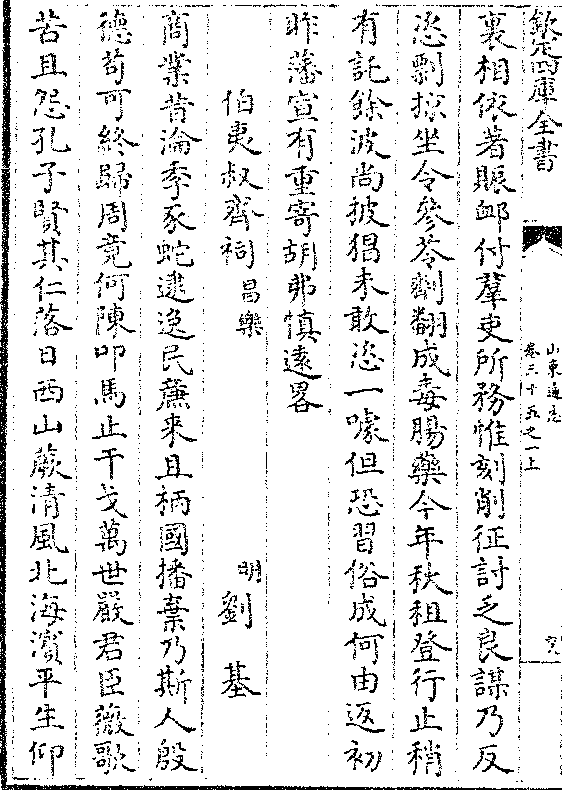 欽定四庫全書
山東通志
卷三十五之一上
裏相依著賑䘏付羣吏所務惟刻削征討乏良謀乃反
恣剽掠坐令參苓劑翻成毒腸藥今年秋租登行止稍
有託餘波尚披猖未敢恣一噱但恐習俗成何由返初
昨藩宣有重寄胡弗慎遠畧
伯夷叔齊祠 昌樂 明 劉基
商業昔淪季豕蛇逮逸民薕来且柄國播棄乃斯人殷
德苟可終歸周竟何陳叩馬止干戈萬世嚴君臣薇歌
苦且怨孔子賢其仁落日西山蕨清風北海濱平生仰